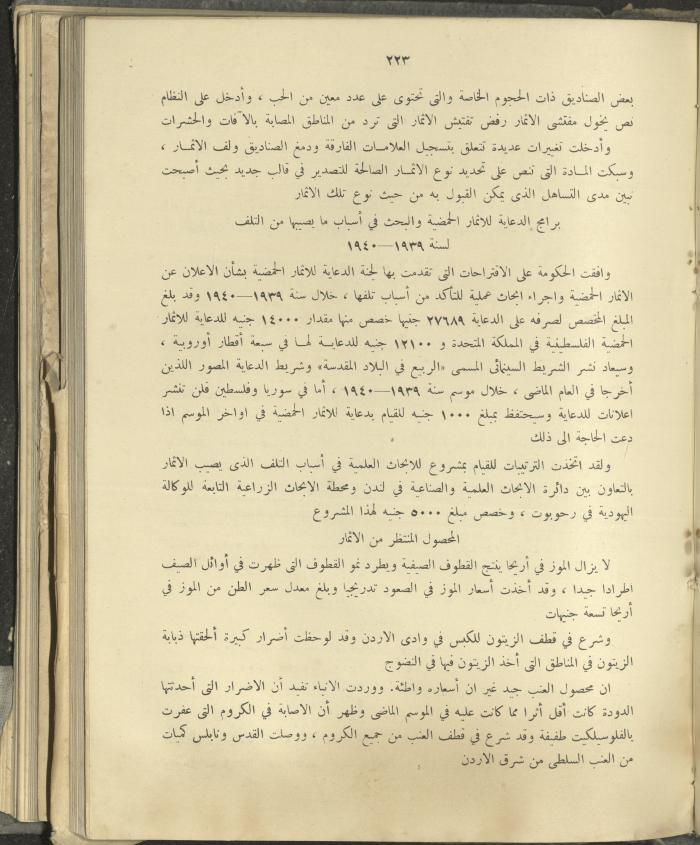 ٢٢٣
بعض الصناديق ذات الحجوم الخاصة والتى تحتوى على عدد معين من الحب ، وأدخل على النظام
نص يخول مفتشى الاثمار رفض تفتيش الاثمار التى ترد من المناطق المصابة بالآفات والحشرات
وأدخلت تغييرات عديدة تتعلق بتسجيل العلامات الفارقة ودمغ الصناديق ولف الاثمار ،
وسبكت المادة التى تنص على تحديد نوع الاثمار الصالحة للتصدير في قالب جديد بحيث أصبحت
تبين مدى التساهل الذى يمكن القبول به من حيث نوع تلك الاثمار
برامج الدعاية للاثمار الحمضية والبحث في أسباب ما يصيبها من التلف
لسنة ١٩٣٩—١٩٤٠
وافقت الحكومة على الاقتراحات التى تقدمت بها لجنة الدعاية للاثمار الحمضية بشأن الاعلان عن
الاثمار الحمضية واجراء ابحاث عملية للتأكد من أسباب تلفها ، خلال سنة ١٩٣٩—١٩٤٠ وقد بلغ
المبلغ المخصص لصرفه على الدعاية ٢٧٦٨٩ جنيها خصص منها مقدار ١٤٠٠٠ جنيه للدعاية للاثمار
الحمضية الفلسطينية في المملكة المتحدة و ١٢١٠٠ جنيه للدعاية لها في سبعة أقطار أوروبية ،
وسيعاد نشر الشريط السينمائى المسمى «الربيع في البلاد المقدسة» وشريط الدعاية المصور اللذين
أخرجا في العام الماضى ، خلال موسم سنة ١٩٣٩—١٩٤٠ ، أما في سوريا وفلسطين فلن تنشر
اعلانات للدعاية وسيحتفظ بمبلغ ١٠٠٠ جنيه للقيام بدعاية للاثمار الحمضية في اواخر الموسم اذا
دعت الحاجة الى ذلك
ولقد اتخذت الترتيبات للقيام بمشروع للابحاث العلمية في أسباب التلف الذى يصيب الاثمار
بالتعاون بين دائرة الابحاث العلمية والصناعية في لندن ومحطة الابحاث الزراعية التابعة للوكالة
اليهودية في رحوبوت ، وخصص مبلغ ٥٠٠٠ جنيه لهذا المشروع
المحصول المنتظر من الاثمار
لا يزال الموز في أريحا ينتج القطوف الصيفية ويطرد نمو القطوف التى ظهرت في أوائل الصيف
اطرادا جيدا ، وقد أخذت أسعار الموز في الصعود تدريجيا وبلغ معدل سعر الطن من الموز في
أريحا تسعة جنيهات
وشرع في قطف الزيتون للكبس في وادى الاردن وقد لوحظت أضرار كبيرة ألحقتها ذبابة
الزيتون في المناطق التى أخذ الزيتون فيها في النضوج
ان محصول العنب جيد غير ان أسعاره واطئة. ووردت الانباء تفيد أن الاضرار التى أحدثتها
الدودة كانت أقل أثرا مما كانت عليه في الموسم الماضى وظهر أن الاصابة في الكروم التى عفرت
بالفلوسيلكيت طفيفة وقد شرع في قطف العنب من جميع الكروم ، ووصلت القدس ونابلس كميات
من العنب السلطى من شرق الاردن